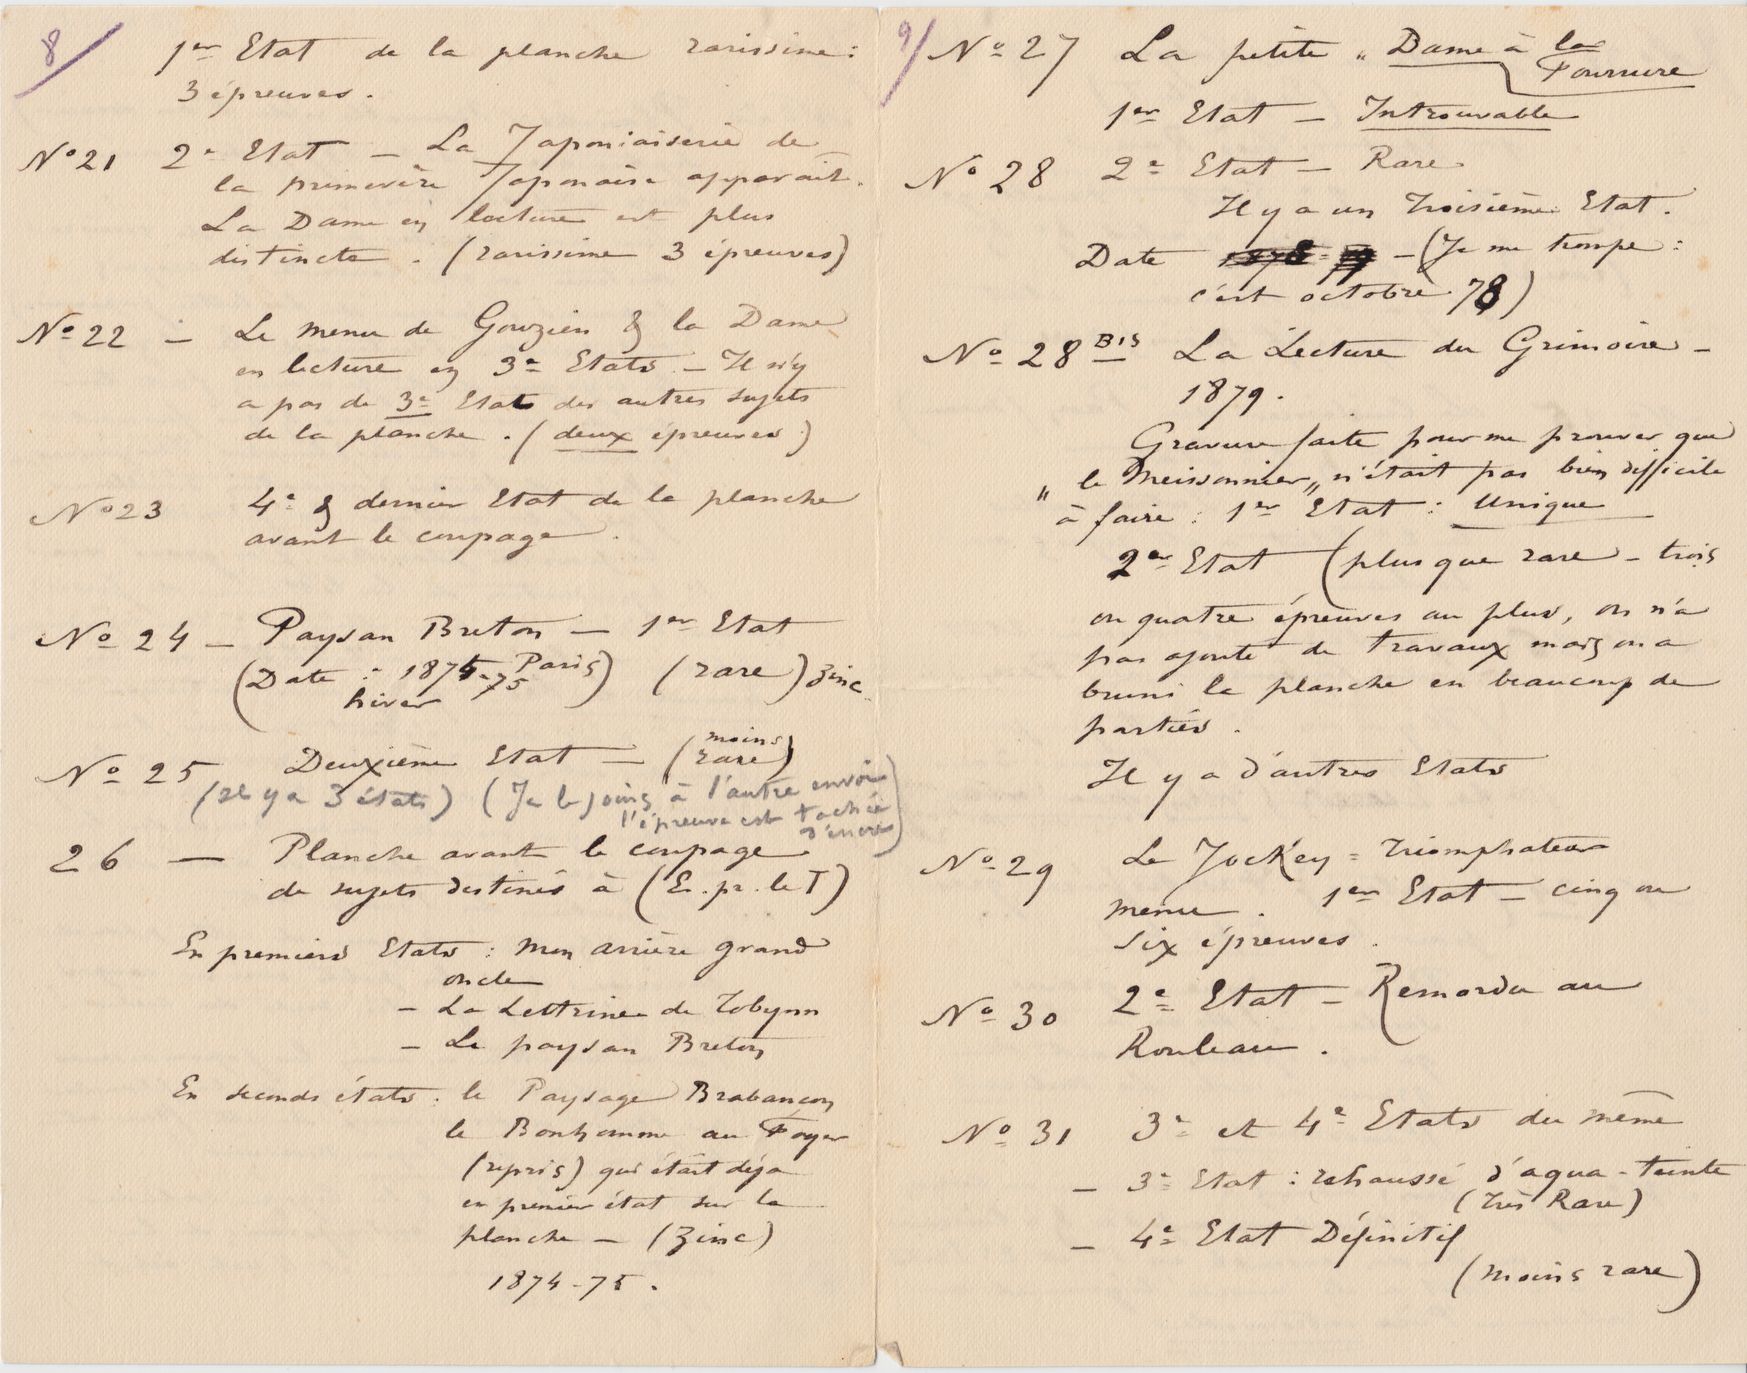 8/
1er Etat de la planche rarissime :
3 épreuves.
No 21 2e Etat — La Japoniaiserie de
la primevère Japonaise apparait.
La Dame en lecture est plus
distincte. (rarissime 3 épreuves)
No 22 — Le menu de Gouzien & la Dame
en lecture en 3e Etats — Il n'y
a pas de 3e Etats des autres sujets
de la planche. (deux épreuves)
No 23 4e & dernier Etat de la planche
avant le coupage.
No 24 — Paysan Breton — 1er Etat
(Date : 1874-75 Paris) (rare) Zinc.
hiver
No 25 Deuxième Etat — (moins
rare)
(Il y a 3 états) (Je le joins à l'autre envoi
l'épreuve est tachée
d'encre)
26 — Planche avant le coupage
de sujets destinés à (E. pr. le T)
En premiers Etats : Mon arrière grand
oncle
— La Lettrine de Tobynn
— Le paysan Breton
En seconds états : le Paysage Brabançon
le Bonhomme au Foyer
(repris) qui était déja
en premier état sur la
planche — (Zinc)
1874-75.
9/ No 27 La petite „ Dame à la
Fourrure
1er Etat — Introuvable
No 28 2e Etat — Rare
Il y a un Troisième Etat.
Date — (Je me trompe :
c'est octobre 78)
No 28 Bis La Lecture du Grimoire —
1879.
Gravure faite pour me prouver que
„ le Meissonnier „ n'était pas bien difficile
à faire : 1er Etat : Unique
2er Etat (plus que rare — trois
ou quatre épreuves au plus, on n'a
pas ajouté de travaux mais on a
bruni la planche en beaucoup de
parties.
Il y a d'autres Etats
No 29 Le Jockey = Triomphateur
menu. 1er Etat — cinq ou
six épreuves.
No 30 2e Etat — Remordu au
Rouleau.
No 31 3e et 4e Etats du même
— 3e Etat : rehaussé d'aqua-teinte
(Très Rare)
— 4e Etat Définitif
(moins rare)